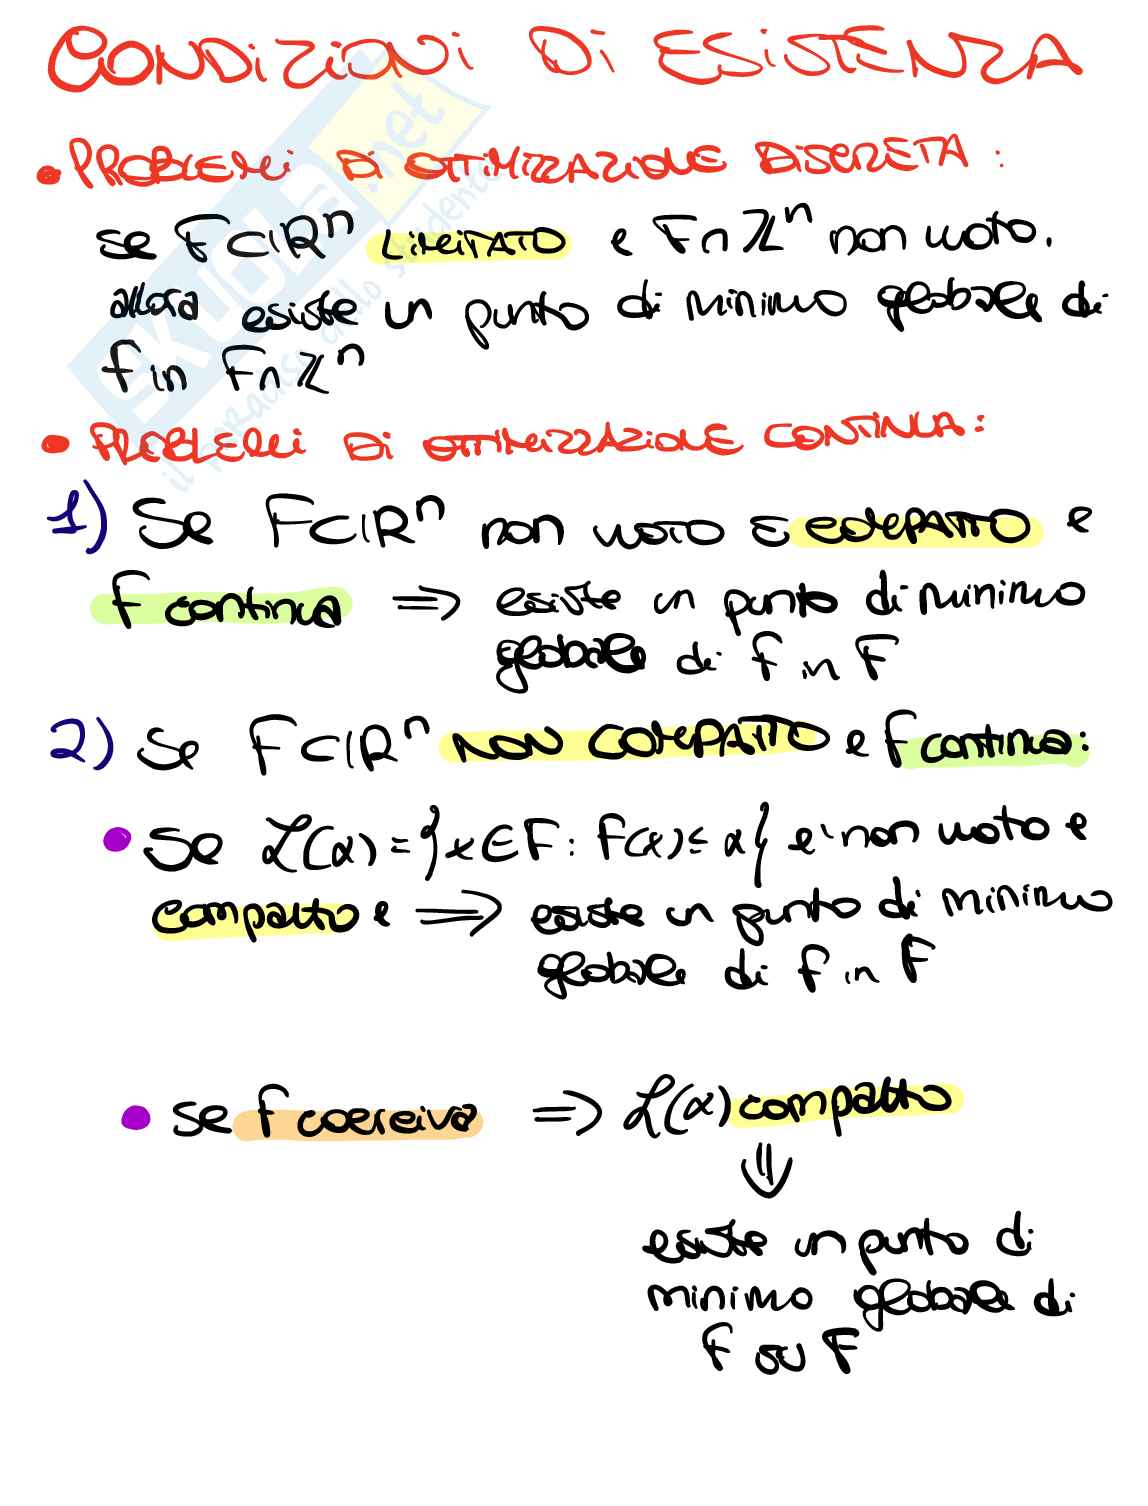 CONDIZIONI DI ESISTENZA
• PROBLEMI DI OTTIMIZZAZIONE DISCRETA :
se F⊂ℝⁿ LIMITATO e F∩ℤⁿ non vuoto,
allora esiste un punto di minimo globale di
f in F∩ℤⁿ
• PROBLEMI DI OTTIMIZZAZIONE CONTINUA:
1) Se F⊂ℝⁿ non vuoto E COMPATTO e
f continua ⇒ esiste un punto di minimo
globale di f in F
2) Se F⊂ℝⁿ NON COMPATTO e f continua:
• Se ℒ(α) = {x∈F: f(x)≤α} e' non vuoto e
compatto e ⇒ esiste un punto di minimo
globale di f in F
• se f coerciva ⇒ ℒ(α) compatto
⇓
esiste un punto di
minimo globale di
f su F
skuola.net
il paradiso dello studente